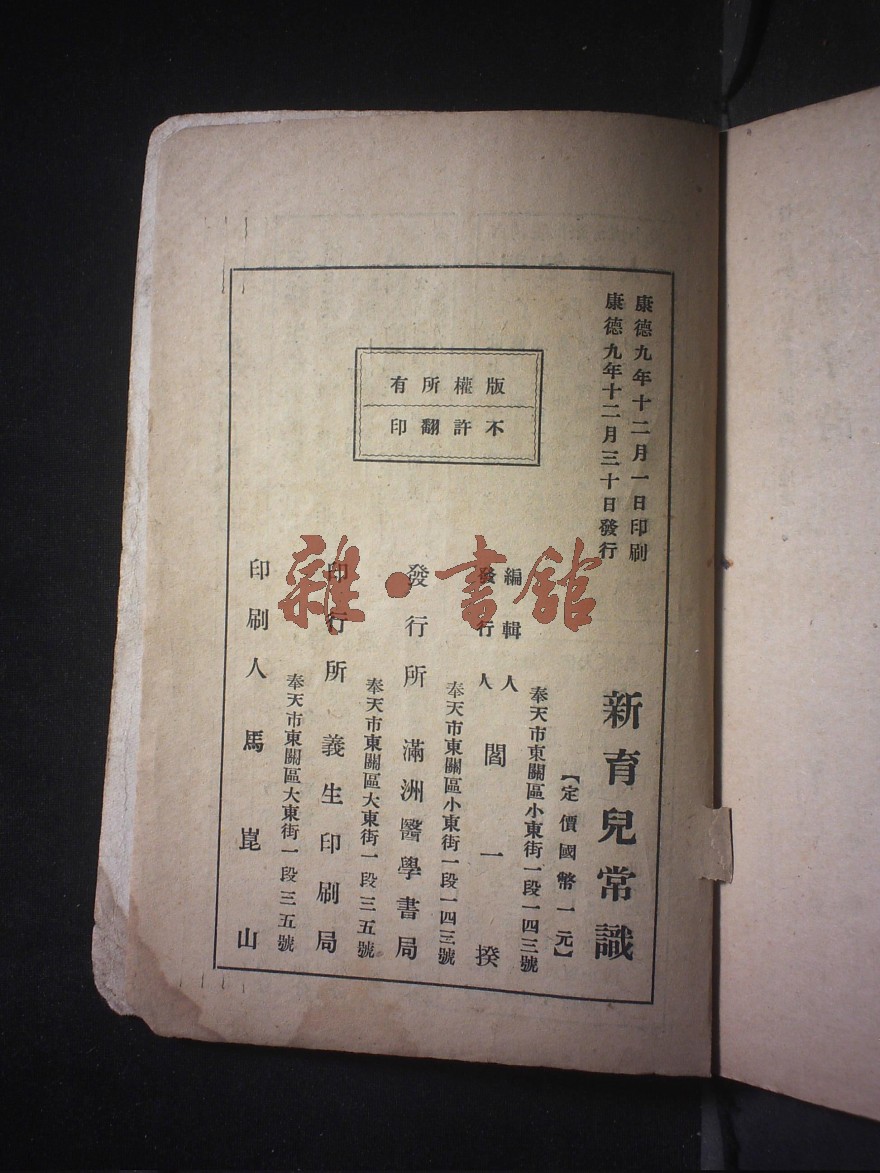 康德九年十二月一日印刷
康德九年十二月三十日發行
新育兒常識
【定價國幣一元】
版權所有
不許翻印
奉天市東關區小東街一段一四三號
編輯人
發行人
閻一揆
奉天市東關區小東街一段一四三號
發行所 滿洲醫學書局
奉天市東關區大東街一段三五號
印行所 義生印刷局
奉天市東關區大東街一段三五號
印刷人 馬崑山
雜·書館